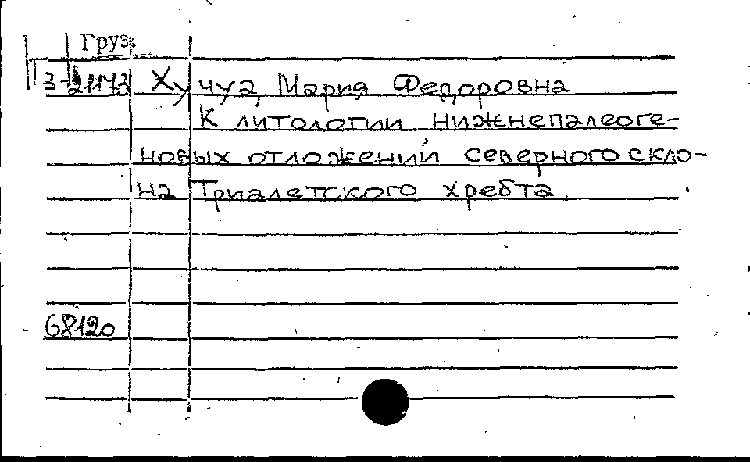 Груз.
3-21173 Хучуа, Мария Федоровна
К литологии нижнепалеоге-
новых отложений северного скло-
на Триалетского хребта.
68120